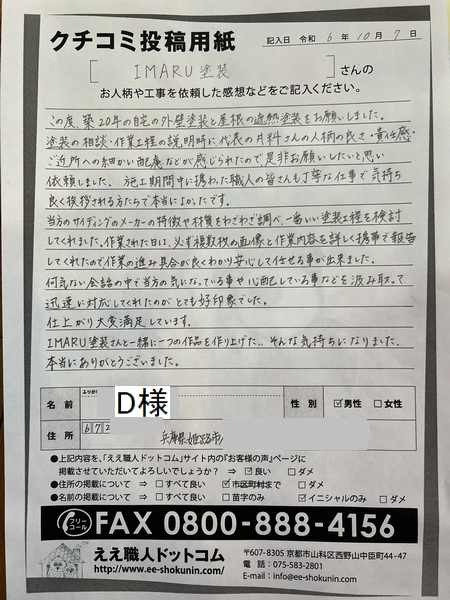 クチコミ投稿用紙
記入日 令和 6 年 10 月 7 日
[ IMARU塗装 ] さんの
お人柄や工事を依頼した感想などをご記入ください。
この度、築20年の自宅の外壁塗装と屋根の遮熱塗装をお願いしました。
塗装の相談・作業工程の説明時に代表の井料さんの人柄の良さ・責任感・
ご近所への細かい配慮などが感じられたので是非お願いしたいと思い
依頼しました。施工期間中に携わった職人の皆さんも丁寧な仕事で気持ち
良く挨拶される方たちで本当によかったです。
当方のサイディングのメーカーの特徴や材質をわざわざ調べ、一番いい塗装工程を検討
してくれました。作業された日は、必ず複数枚の画像と作業内容を詳しく携帯で報告
してくれたので作業の進み具合が良くわかり安心して任せる事が出来ました。
何気ない会話の中で当方の気になっている事や心配している事などを汲み取って
迅速に対応してくれたのがとても好印象でした。
仕上がり大変満足しています。
IMARU塗装さんと一緒に一つの作品を作り上げた... そんな気持ちになりました。
本当にありがとうございました。
ふりがな
名前 D様 性別 ☑男性 □女性
住所 672 兵庫県姫路市
●上記内容を、「ええ職人ドットコム」サイト内の『お客様の声』ページに
掲載させていただいてよろしいでしょうか？ ⇒ ☑良い □ダメ
●住所の掲載について ⇒ □すべて良い ☑市区町村まで □ダメ
●名前の掲載について ⇒ □すべて良い □苗字のみ ☑イニシャルのみ □ダメ
フリーコール FAX 0800-888-4156
ええ職人ドットコム
http://www.ee-shokunin.com/
〒607-8305 京都市山科区西野山中臣町44-47
電話：075-583-2801
E-mail：info@ee-shokunin.com